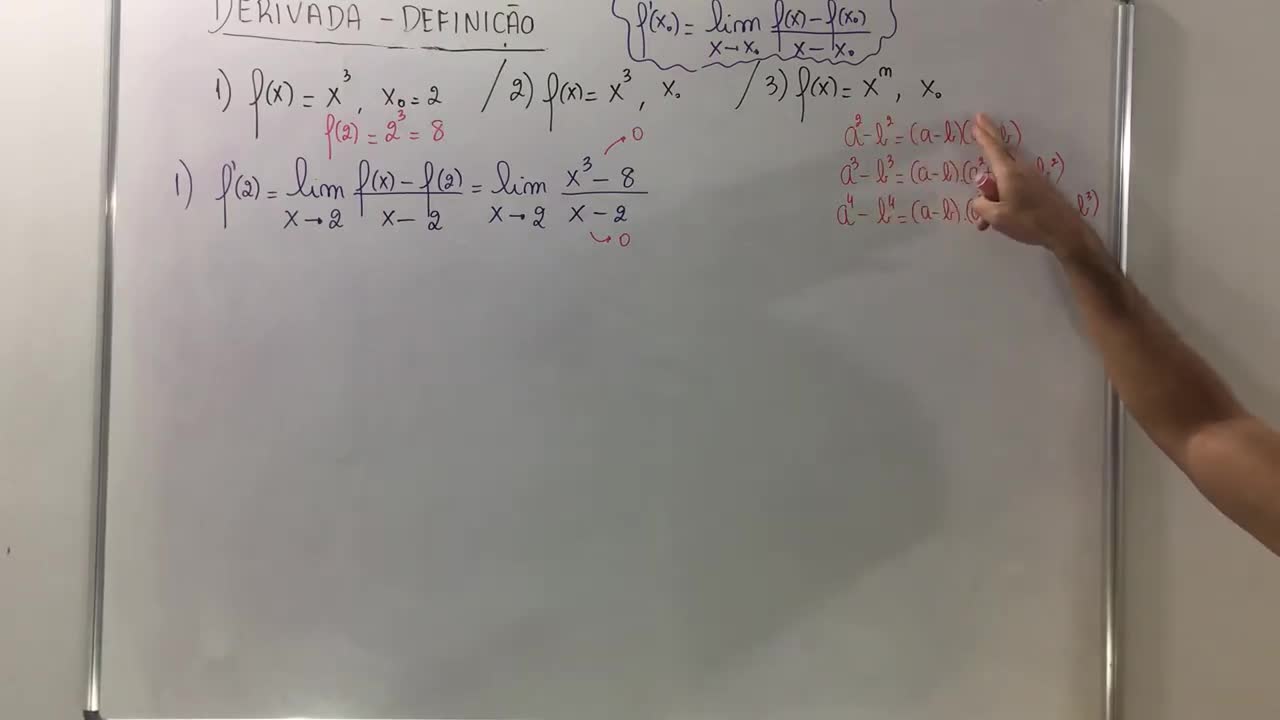 DERIVADA - DEFINIÇÃO
f'(x₀) = lim x→x₀ f(x) - f(x₀) / x - x₀
1) f(x) = x³, x₀ = 2 / 2) f(x) = x³, x₀ / 3) f(x) = xⁿ, x₀
f(2) = 2³ = 8
a² - b² = (a-b)( b)
a³ - b³ = (a-b).(a² b²)
a⁴ - b⁴ = (a-b).( b³)
1) f'(2) = lim x→2 f(x) - f(2) / x - 2 = lim x→2 x³ - 8 / x - 2
→ 0
→ 0